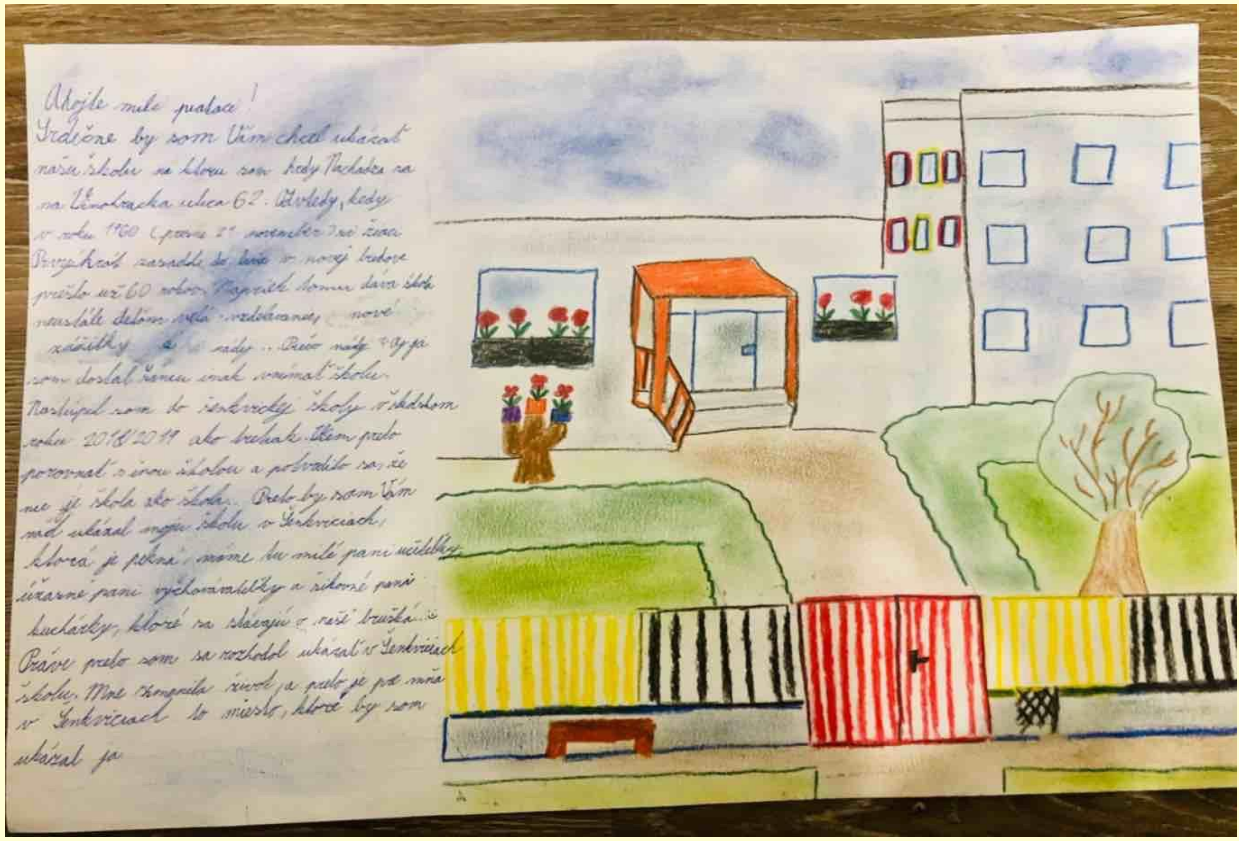 Ahojte milé
Srdečne by som Vám chcel ukázať
našu školu na ktorú som
na Vinohradska ulica 62. Odvtedy, kedy
v roku 1960 (presne 21 november)
Prvýkrát zasadli do lavíc v novej budove
prešlo už 60 rokov. Napriek tomu dáva škola
neustále deťom veľa vzdelávania, nové
zážitky a rady .. Preto
som dostal šancu inak vnímať školu.
Nastúpil som do šenkvickej školy v školskom
roku 2018/2019 ako preto
porovnať s inou školou a potvrdilo sa, že
nie je škola ako škola. Preto by som Vám
rád ukázal moju školu v Šenkviciach,
ktorá je pekná, máme tu milé pani učiteľky,
úžasné pani vychovávateľky a šikovné pani
kuchárky, ktoré sa starajú o naše brušká...
Práve preto som sa rozhodol ukázať v Šenkviciach
školu. Mne zmenila život, a preto je pre mňa
v Šenkviciach to miesto, ktoré by som
ukázal ja